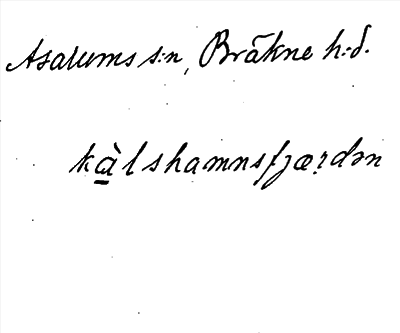 Asarums s:n, Bräkne h:d.
kà̲lshamnsfjæṛdən